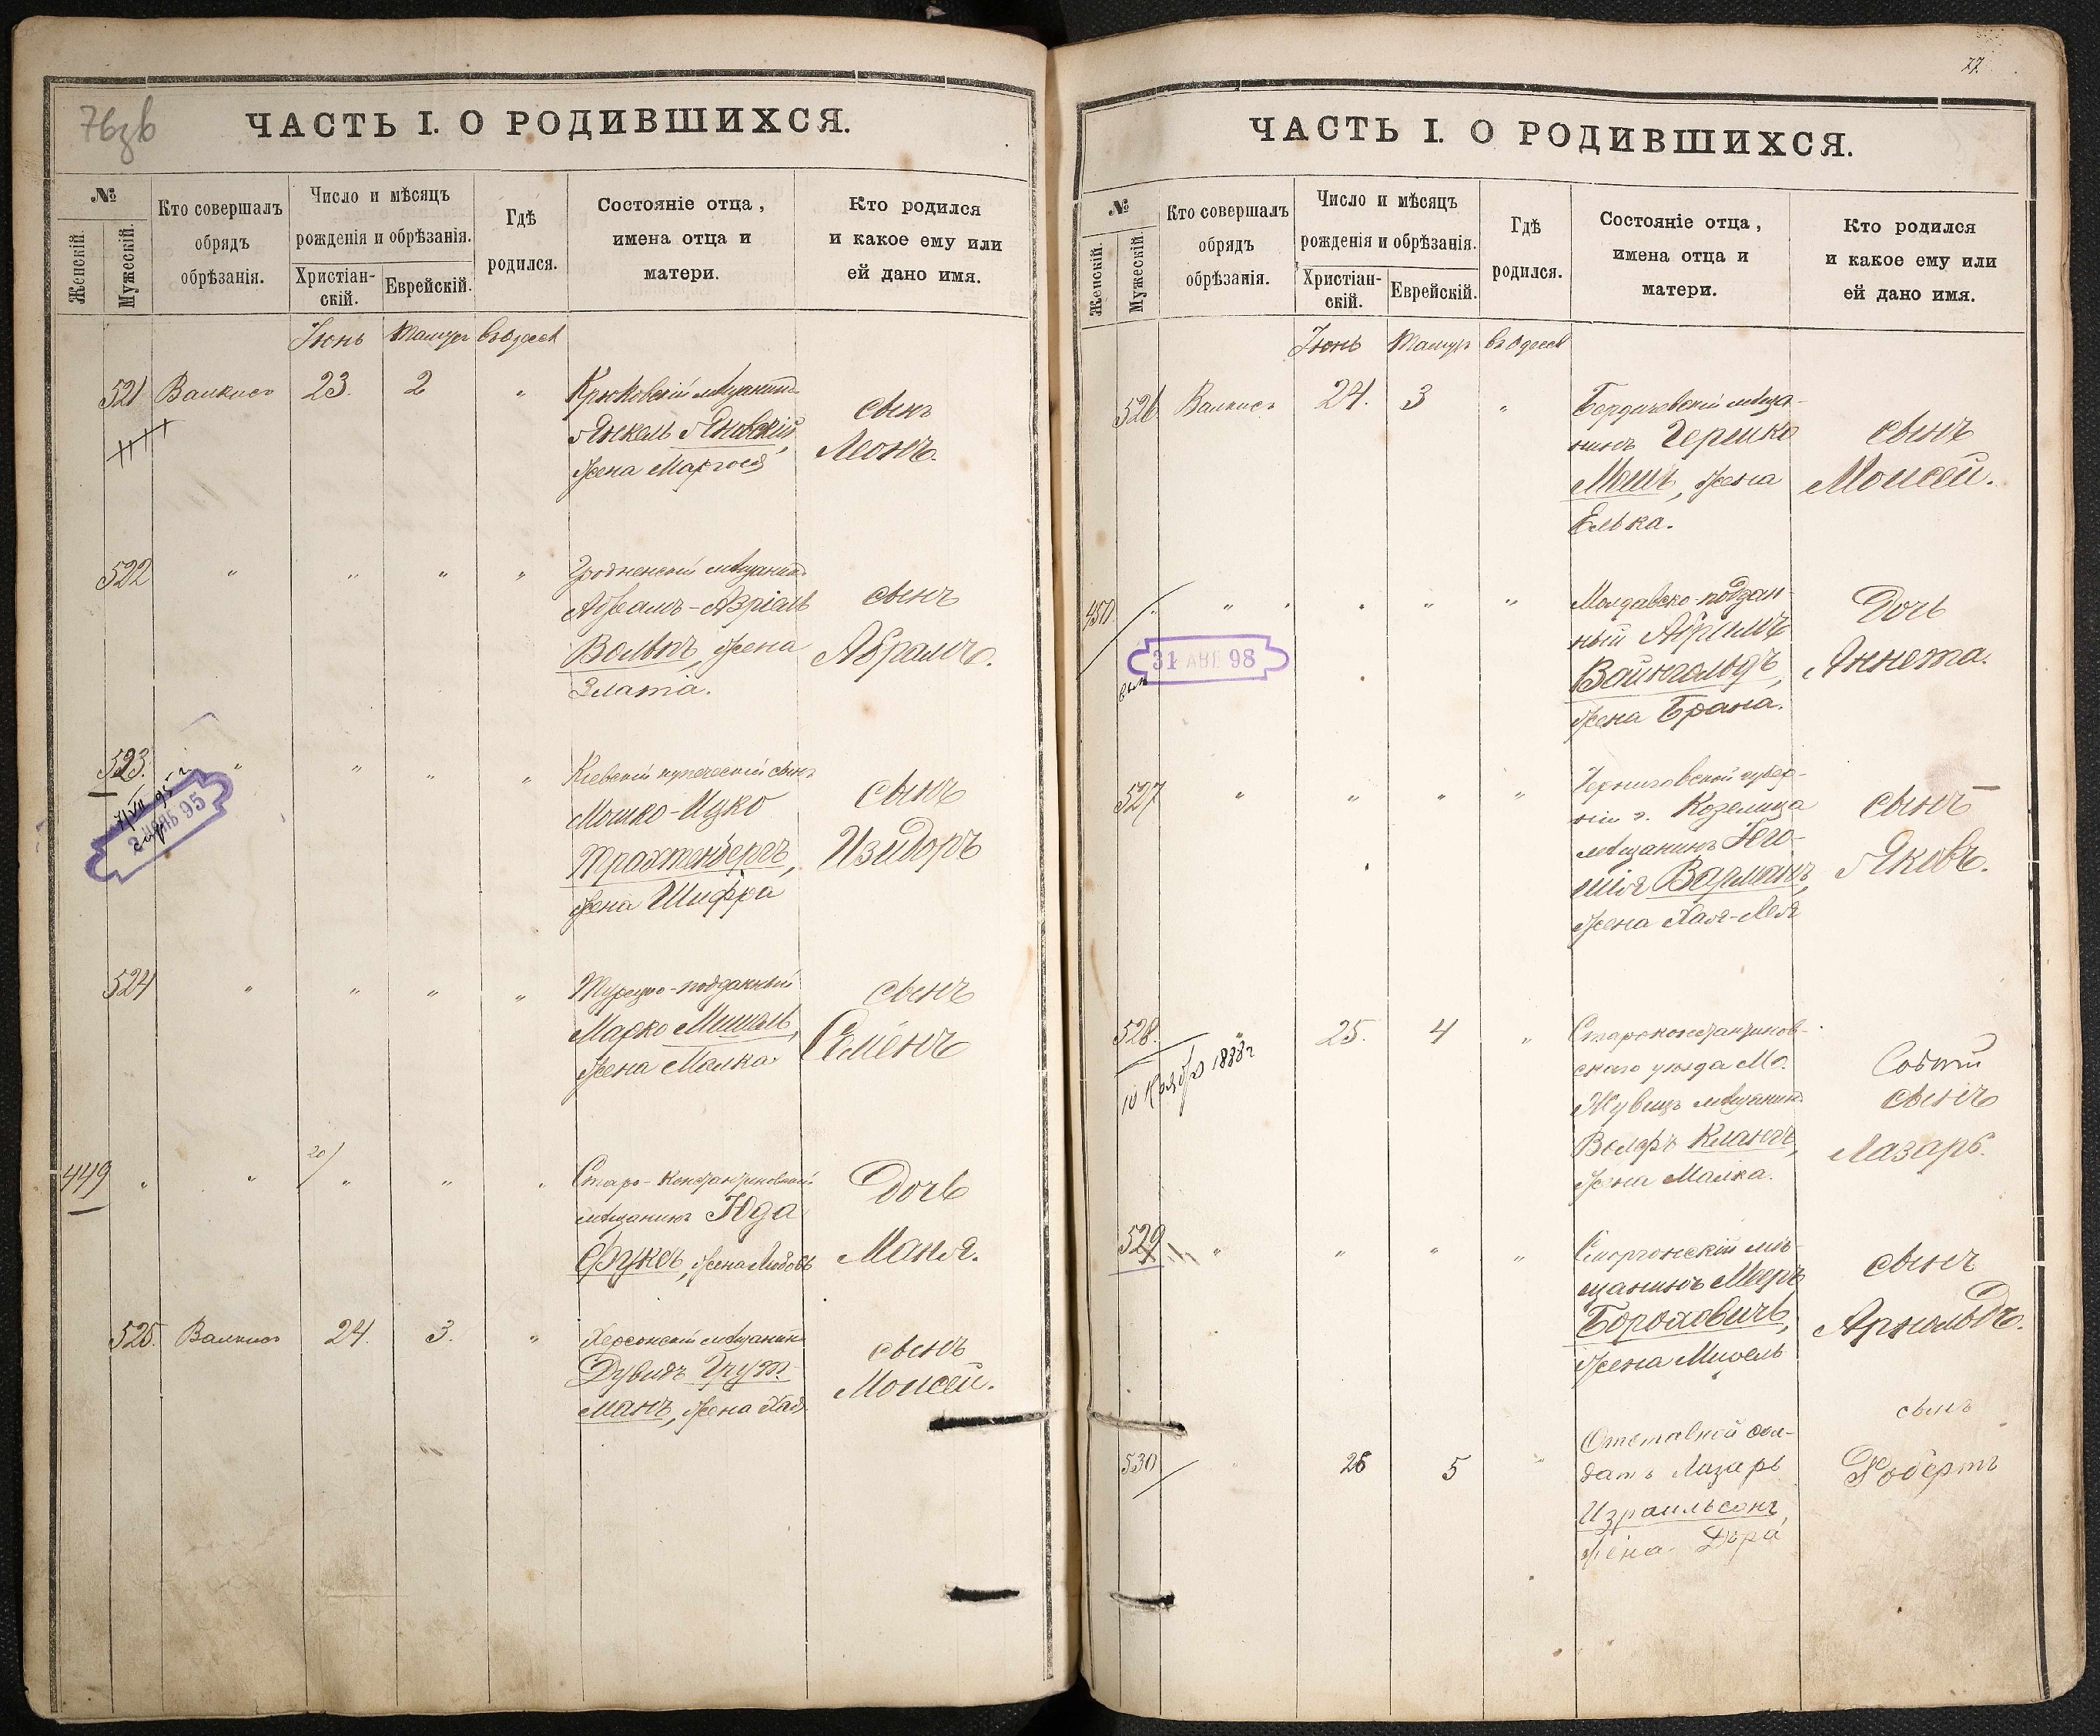 76зв
ЧАСТЬ I. О РОДИВШИХСЯ.
№
Женскій.
Мужескій.
Кто совершалъ
обрядъ
обрѣзанія.
Число и мѣсяцъ
рожденія и обрѣзанія.
Христіан-
скій.
Еврейскій.
Гдѣ
родился.
Состояніе отца,
имена отца и
матери.
Кто родился
и какое ему или
ей дано имя.
Іюнь Тамузъ въ Одессѣ
521 23. 2 " Крюковскій мѣщанинъ
Янкель Яновскій,
жена
сынъ
Леонъ.
522 " " " " Гродненскій мѣщанинъ
Абрамъ-Азріель
Вольпъ, жена
Злата.
сынъ
Абрамъ.
523. " " " " Кіевскій купеческій сынъ
Мошко-Ицко
Трахтенбергъ,
жена Шифра
сынъ
Изидоръ
95
524 " " " " Турецко-подданный
Марко Мишель,
жена Малка
сынъ
Семенъ
449 " " 20/ " " " Старо-Константиновскій
мѣщанинъ Юда
Фуксъ, жена Любовь
Дочь
Маня.
525. 24. 3. " Херсонскій мѣщанинъ
Дувидъ Гут-
манъ, жена Хая
сынъ
Моисей.
77.
ЧАСТЬ I. О РОДИВШИХСЯ.
№
Женскій.
Мужескій.
Кто совершалъ
обрядъ
обрѣзанія.
Число и мѣсяцъ
рожденія и обрѣзанія.
Христіан-
скій.
Еврейскій.
Гдѣ
родился.
Состояніе отца,
имена отца и
матери.
Кто родился
и какое ему или
ей дано имя.
Іюнь Тамузъ въ Одессѣ
526 24. 3 " Бердичевскій мѣща-
нинъ Гершко
жена
Елька.
сынъ
Моисей.
450. " " " " Молдавско-поддан-
ный Абрамъ
Вайнгольдъ,
жена Брана.
Дочь
Аннета.
31 АВГ 98
527 " " " " Черниговской губер-
ніи г. Козельца
мѣщанинъ
Варманъ,
жена Хая-Лея
сынъ
Яковъ.
528. 25. 4 " Староконстантинов-
скаго уѣзда М.
мѣщанинъ
Вольфъ
жена Малка.
сынъ
Лазарь.
10 Ноября 1888 г
529 " " " " Сморгонскій мѣ-
щанинъ Мееръ
Бороховичъ,
жена
сынъ
Арнольдъ.
530 26 5 Отставной сол-
датъ Лазарь
Израильсонъ,
жена Дора
сынъ
Робертъ